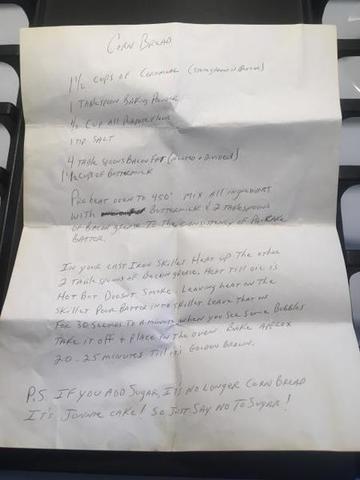 Corn Bread
1 1/2 cups of Cornmeal
1 Tablespoon Baking Powder
1/2 Cup All Purpose Flour
1 tsp Salt
4 Table Spoons Bacon Fat (Melted + Divided)
1 1/2 cups of Buttermilk
Preheat oven to 450° Mix All ingredients
with Buttermilk & 2 Tablespoons
of Bacon grease To the Consistency of Pancake
Batter.
In your cast Iron Skillet Heat up the other
2 Tablespoons of Bacon grease. Heat till oil is
Hot But Doesn't Smoke. Leaving heat on the
Skillet Pour Batter into skillet Leave that on
For 30 Seconds to A minute when you see some Bubbles
Take it off + Place in the oven. Bake Approx
20-25 minutes Till its Golden Brown.
P.S. If you Add Sugar, It's no longer Corn Bread
It's Jonnie Cake! So Just Say No To Sugar!